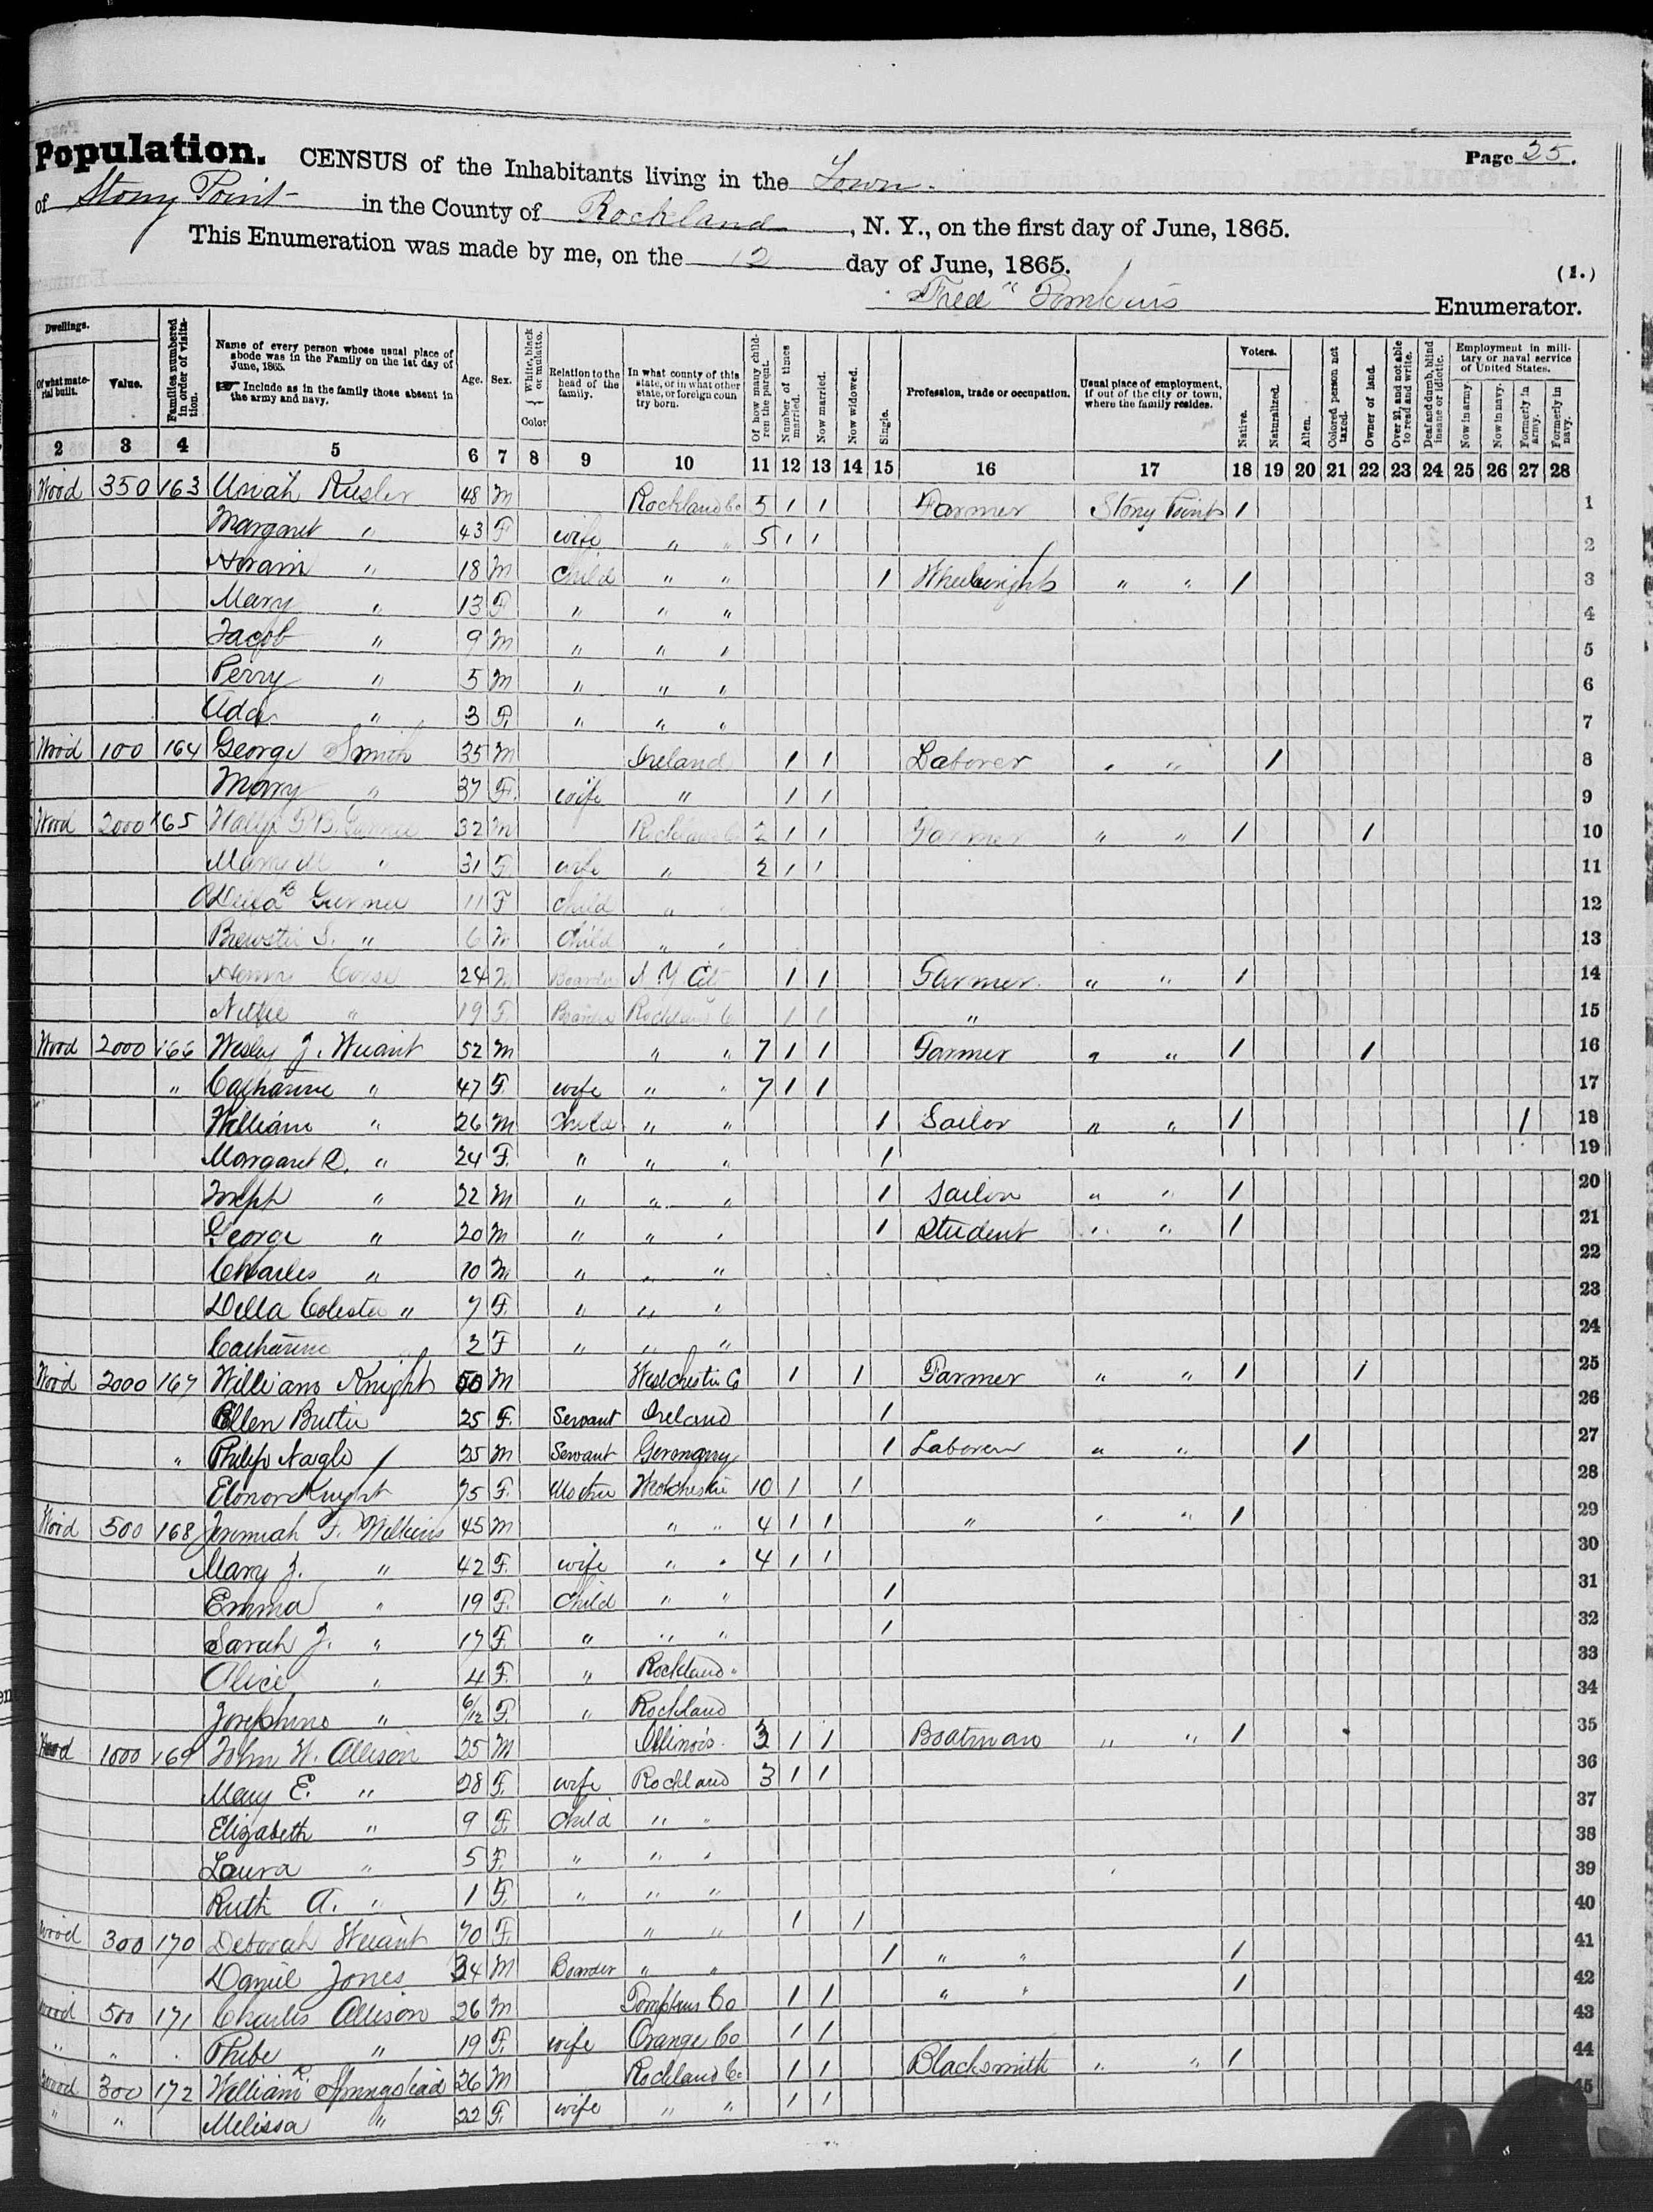 Population. CENSUS of the Inhabitants living in the Town. Page 35.
of Stony Point in the County of Rockland, N. Y., on the first day of June, 1865.
This Enumeration was made by me, on the 12 day of June, 1865. (1.)
Fred " Tomkins Enumerator.
Dwellings. Of what material built. Value. Families numbered in order of visitation. Name of every person whose usual place of abode was in the Family on the 1st day of June, 1865. Include as in the family those absent in the army and navy. Age. Sex. White, black or mulatto. Color Relation to the head of the family. In what county of this state, or in what other state, or foreign coun try born. Of how many children the parent. Number of times married. Now married. Now widowed. Single. Profession, trade or occupation. Usual place of employment, if out of the city or town, where the family resides. Voters. Native. Naturalized. Alien. Colored person not taxed. Owner of land. Over 21, and not able to read and write. Deaf and dumb, blind insane or idiotic. Employment in military or naval service of United States. Now in army. Now in navy. Formerly in army. Formerly in navy.
2 3 4 5 6 7 8 9 10 11 12 13 14 15 16 17 18 19 20 21 22 23 24 25 26 27 28
Wood 350 163 Uriah 48 M Rockland Co 5 1 1 Farmer Stony Point 1 1
Margaret " 43 F wife " " 5 1 1 2
Hiram " 18 M Child " " 1 Wheelwright " " 1 3
Mary " 13 F " " " 4
Jacob " 9 M " " " 5
Perry " 5 M " " " 6
Ada " 3 F. " " " 7
Wood 100 164 George Smith 35 M Ireland 1 1 Laborer " " 1 8
Mary " 37 F. wife " 1 1 9
Wood 2000 165 Gurnee 32 M Rockland Co 2 1 1 Farmer " " 1 1 10
Mary M " 31 F. wife " 2 1 1 11
Gurnee 11 F Child " " 12
Brewster S. " 6 M Child " " 13
Henry 24 M Boarder N. Y. City 1 1 Farmer. " " 1 14
Nettie " 19 F. Boarder Rockland Co 1 1 " 15
Wood 2000 166 Wesley J. Weiant 52 M " " 7 1 1 Farmer " " 1 1 16
" Catharine " 47 F. wife " " 7 1 1 17
William " 26 M Child " " 1 Sailor " " 1 1 18
Margaret " 24 F. " " " 1 19
Joseph " 22 M " " " 1 Sailor " " 1 20
George " 20 M " " " 1 Student " " 1 21
Charles " 10 M " " " 22
Della Celesta " 7 F. " " " 23
Catharine 2 F " " " 24
Wood 2000 167 William Knight 50 M Westchester Co 1 1 Farmer " " 1 1 25
Ellen Butler 25 F. Servant Ireland 1 26
" Philip Naglo 25 M Servant Germany 1 Laborer " " 1 27
Elonor Knight 75 F. Mother Westchester 10 1 1 28
Wood 500 168 Jeremiah F. Wilkins 45 M " " 4 1 1 " " " 1 29
Mary J. " 42 F. wife " " 4 1 1 30
Emma " 19 F. Child " " 1 31
Sarah J. " 17 F. " " " 1 32
Alice " 4 F. " Rockland " 33
Josephine " 6/12 F. " Rockland 34
Wood 1000 169 John W. Allison 25 M Illinois. 3 1 1 Boatman " " 1 35
Mary E. " 28 F. wife Rockland 3 1 1 36
Elizabeth " 9 F. Child " " 37
Laura " 5 F. " " " 38
Ruth A. " 1 F. " " " 39
Wood 300 170 Deborah Weiant 70 F. " " 1 1 40
Daniel Jones 34 M Boarder " " 1 " " 1 41
Wood 500 171 Charles Allison 26 M Tompkins Co 1 1 " " 1 42
" " " Phebe " 19 F. wife Orange Co 1 1 43
Wood 300 172 William R. Springstead 26 M Rockland Co 1 1 Blacksmith " " 1 44
" " Melissa " 22 F. wife " " 1 1 45